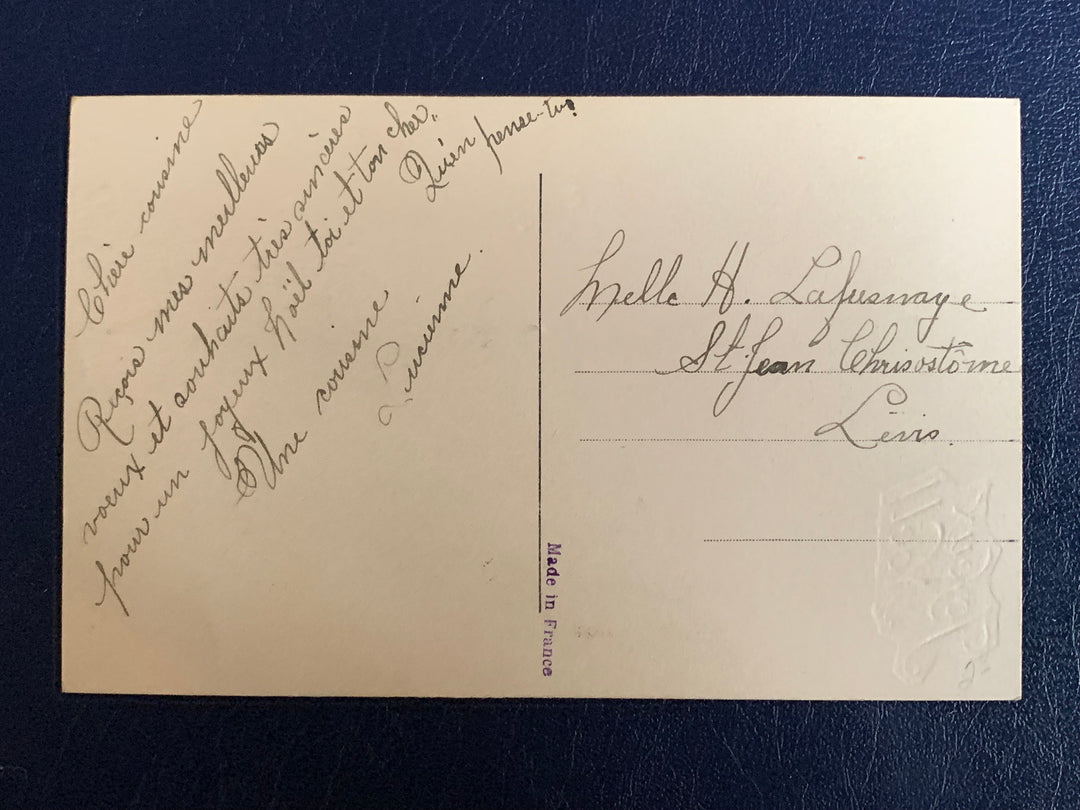 Chère cousine
Reçois mes meilleurs
voeux et souhaits très sincères
pour un joyeux Noël toi et ton cher.
Qu'en pense-tu?
Une cousine
Lucienne.
Melle H. Lafresnaye
St Jean Chrisostôme
Lévis.
Made in France